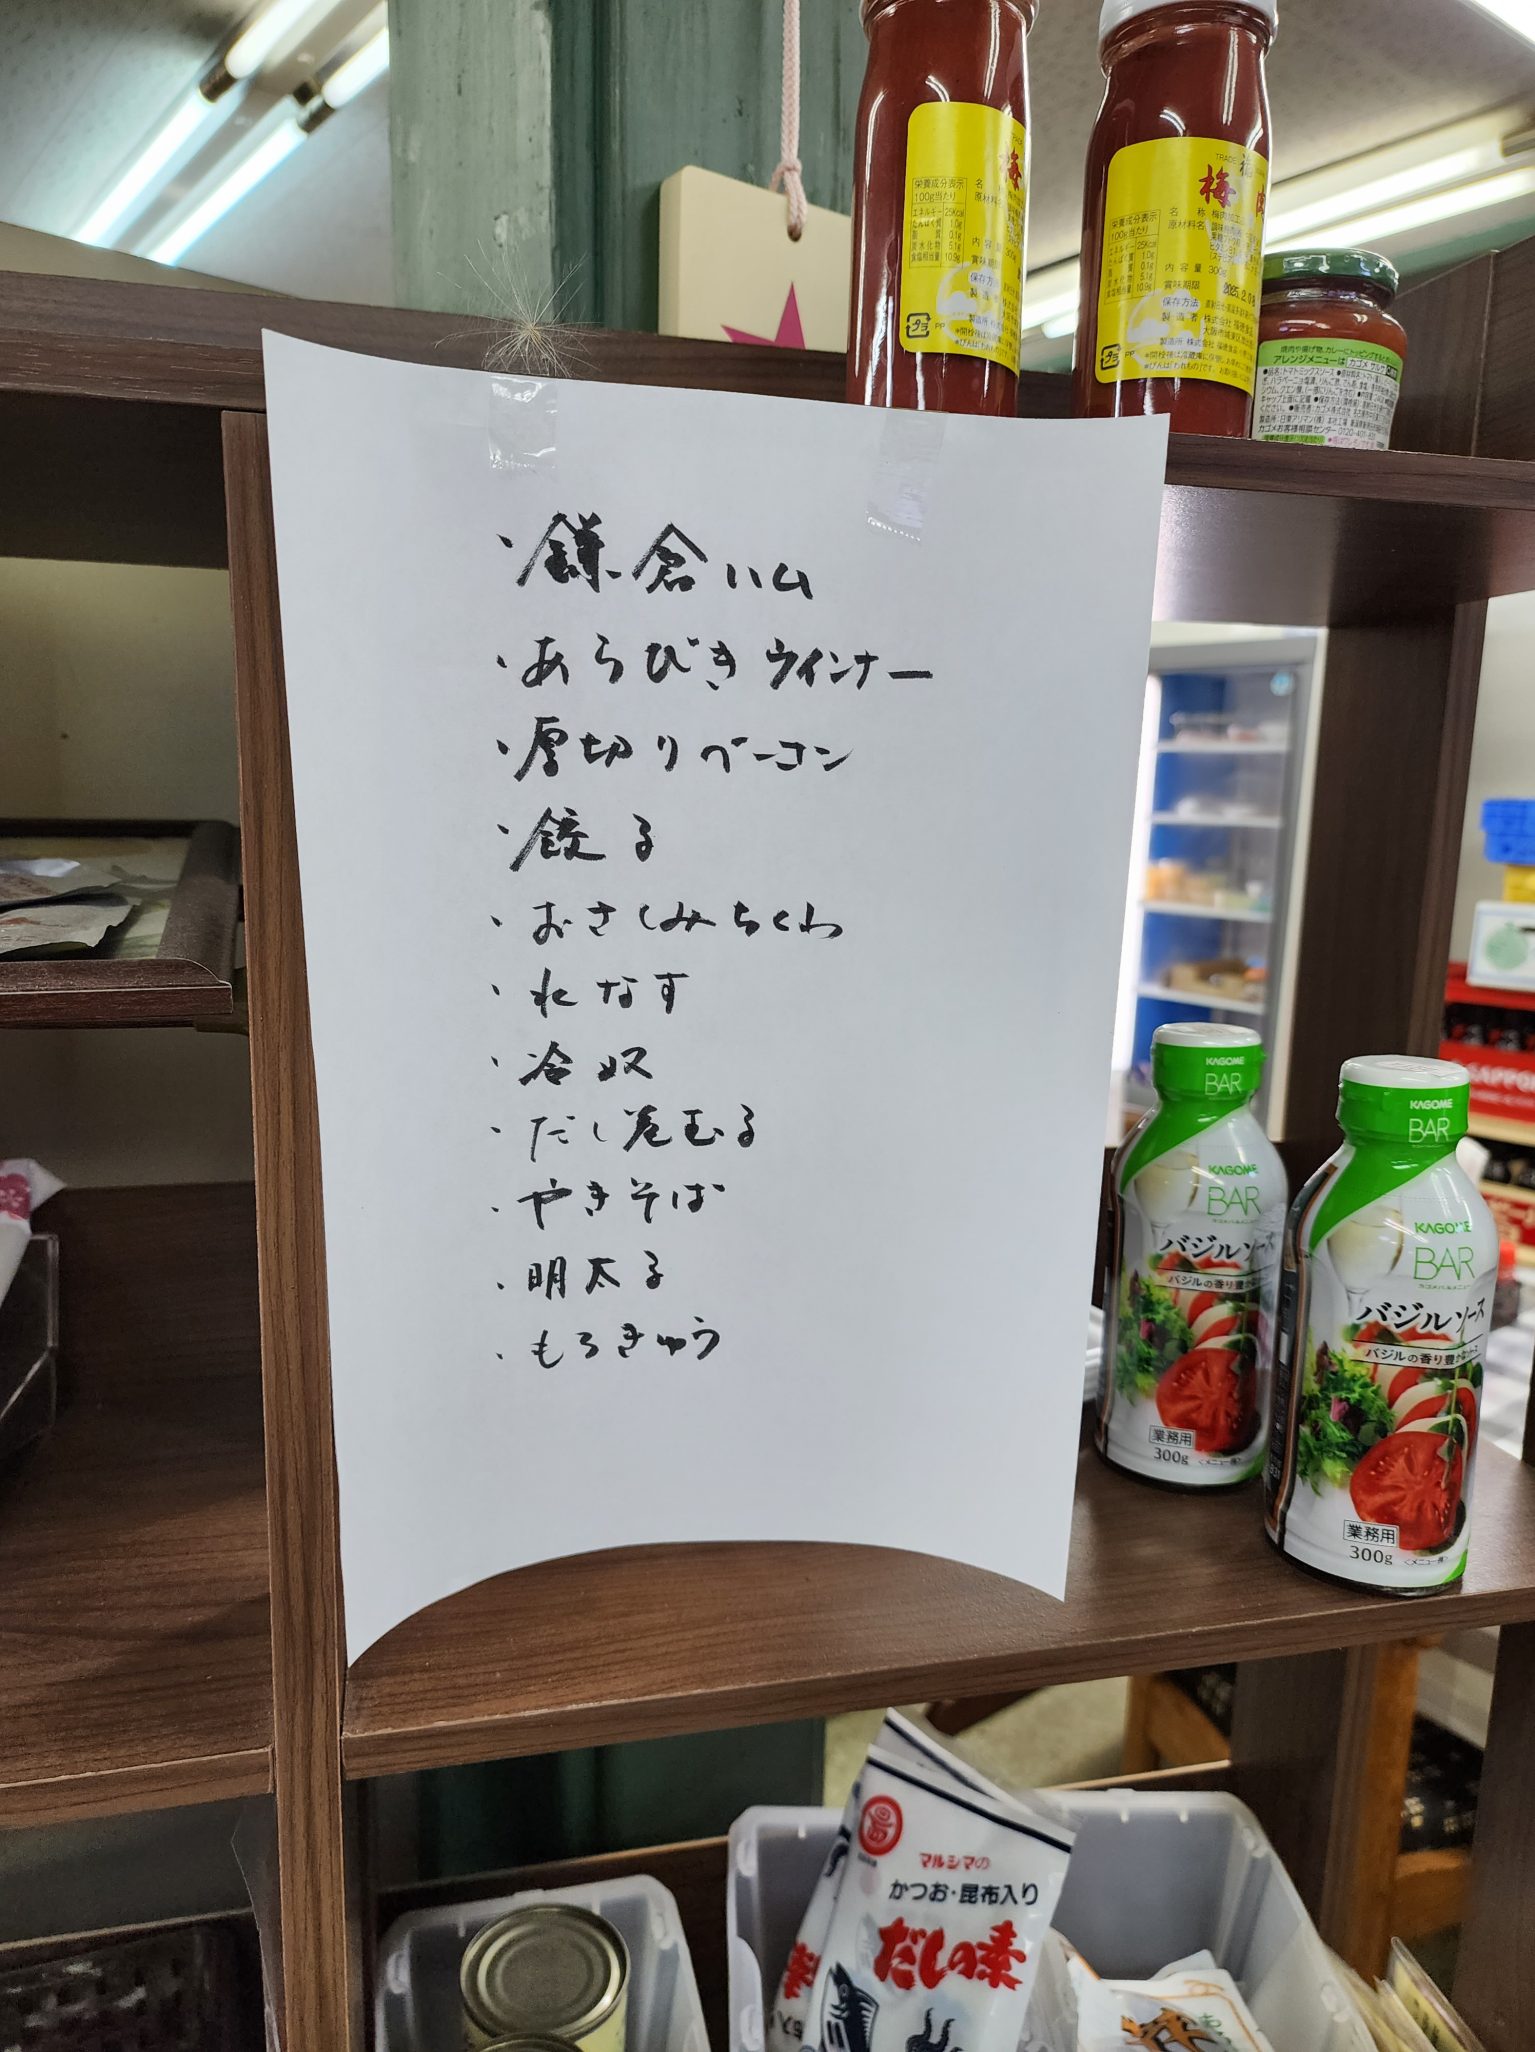 ・鎌倉ハム
・あらびきウインナー
・厚切りベーコン
・餃子
・おさしみちくわ
・水なす
・冷奴
・だし巻玉子
・やきそば
・明太子
・もろきゅう
梅
栄養成分表示
100g当たり
エネルギー 25Kcal
たんぱく質 1.0g
脂質 0.1g
炭水化物 5.1g
食塩相当量 10.9g
梅肉
栄養成分表示
100g当たり
エネルギー 25Kcal
たんぱく質 1.0g
脂質 0.1g
炭水化物 5.1g
食塩相当量 10.9g
名称
原材料名
内容量 300g
賞味期限 2025.2.08
保存方法
製造者 株式会社
PP
アレンジメニューは カゴメ サルサ
カゴメお客様相談センター 0120-401-831
KAGOME
BAR
KAGOME
BAR
バジルソース
バジルの香り豊かな
業務用
300g
KAGOME
BAR
KAGOME
BAR
バジルソース
バジルの香り豊かな
業務用
300g
SAPPO
マルシマの
かつお・昆布入り
だしの素